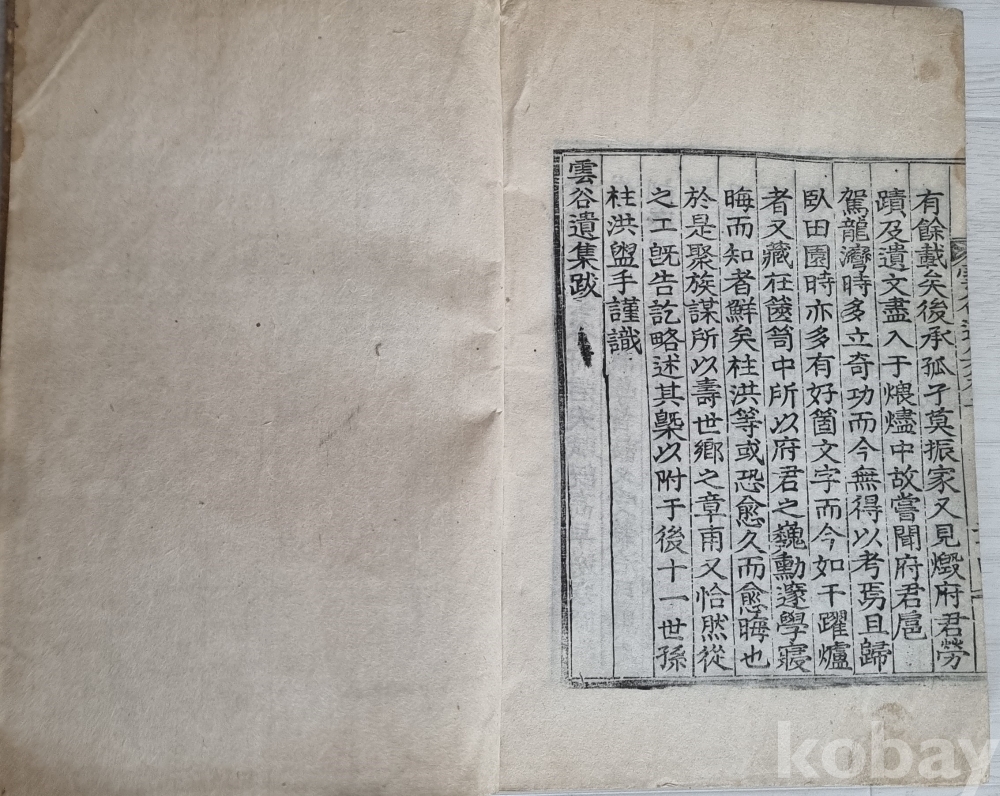 有餘載矣後承孤孑莫振家又見燬府君勞
蹟及遺文盡入于煨燼中故嘗聞府君扈
駕龍灣時多立奇功而今無得以考焉且歸
臥田園時亦多有好箇文字而今如干躍爐
者又藏在篋笥中所以府君之巍勳邃學寢
晦而知者鮮矣柱洪等或恐愈久而愈晦也
於是聚族謀所以壽世鄉之章甫又恰然從
之工旣告訖略述其槩以附于後十一世孫
柱洪盥手謹識
雲谷遺集跋
kobay